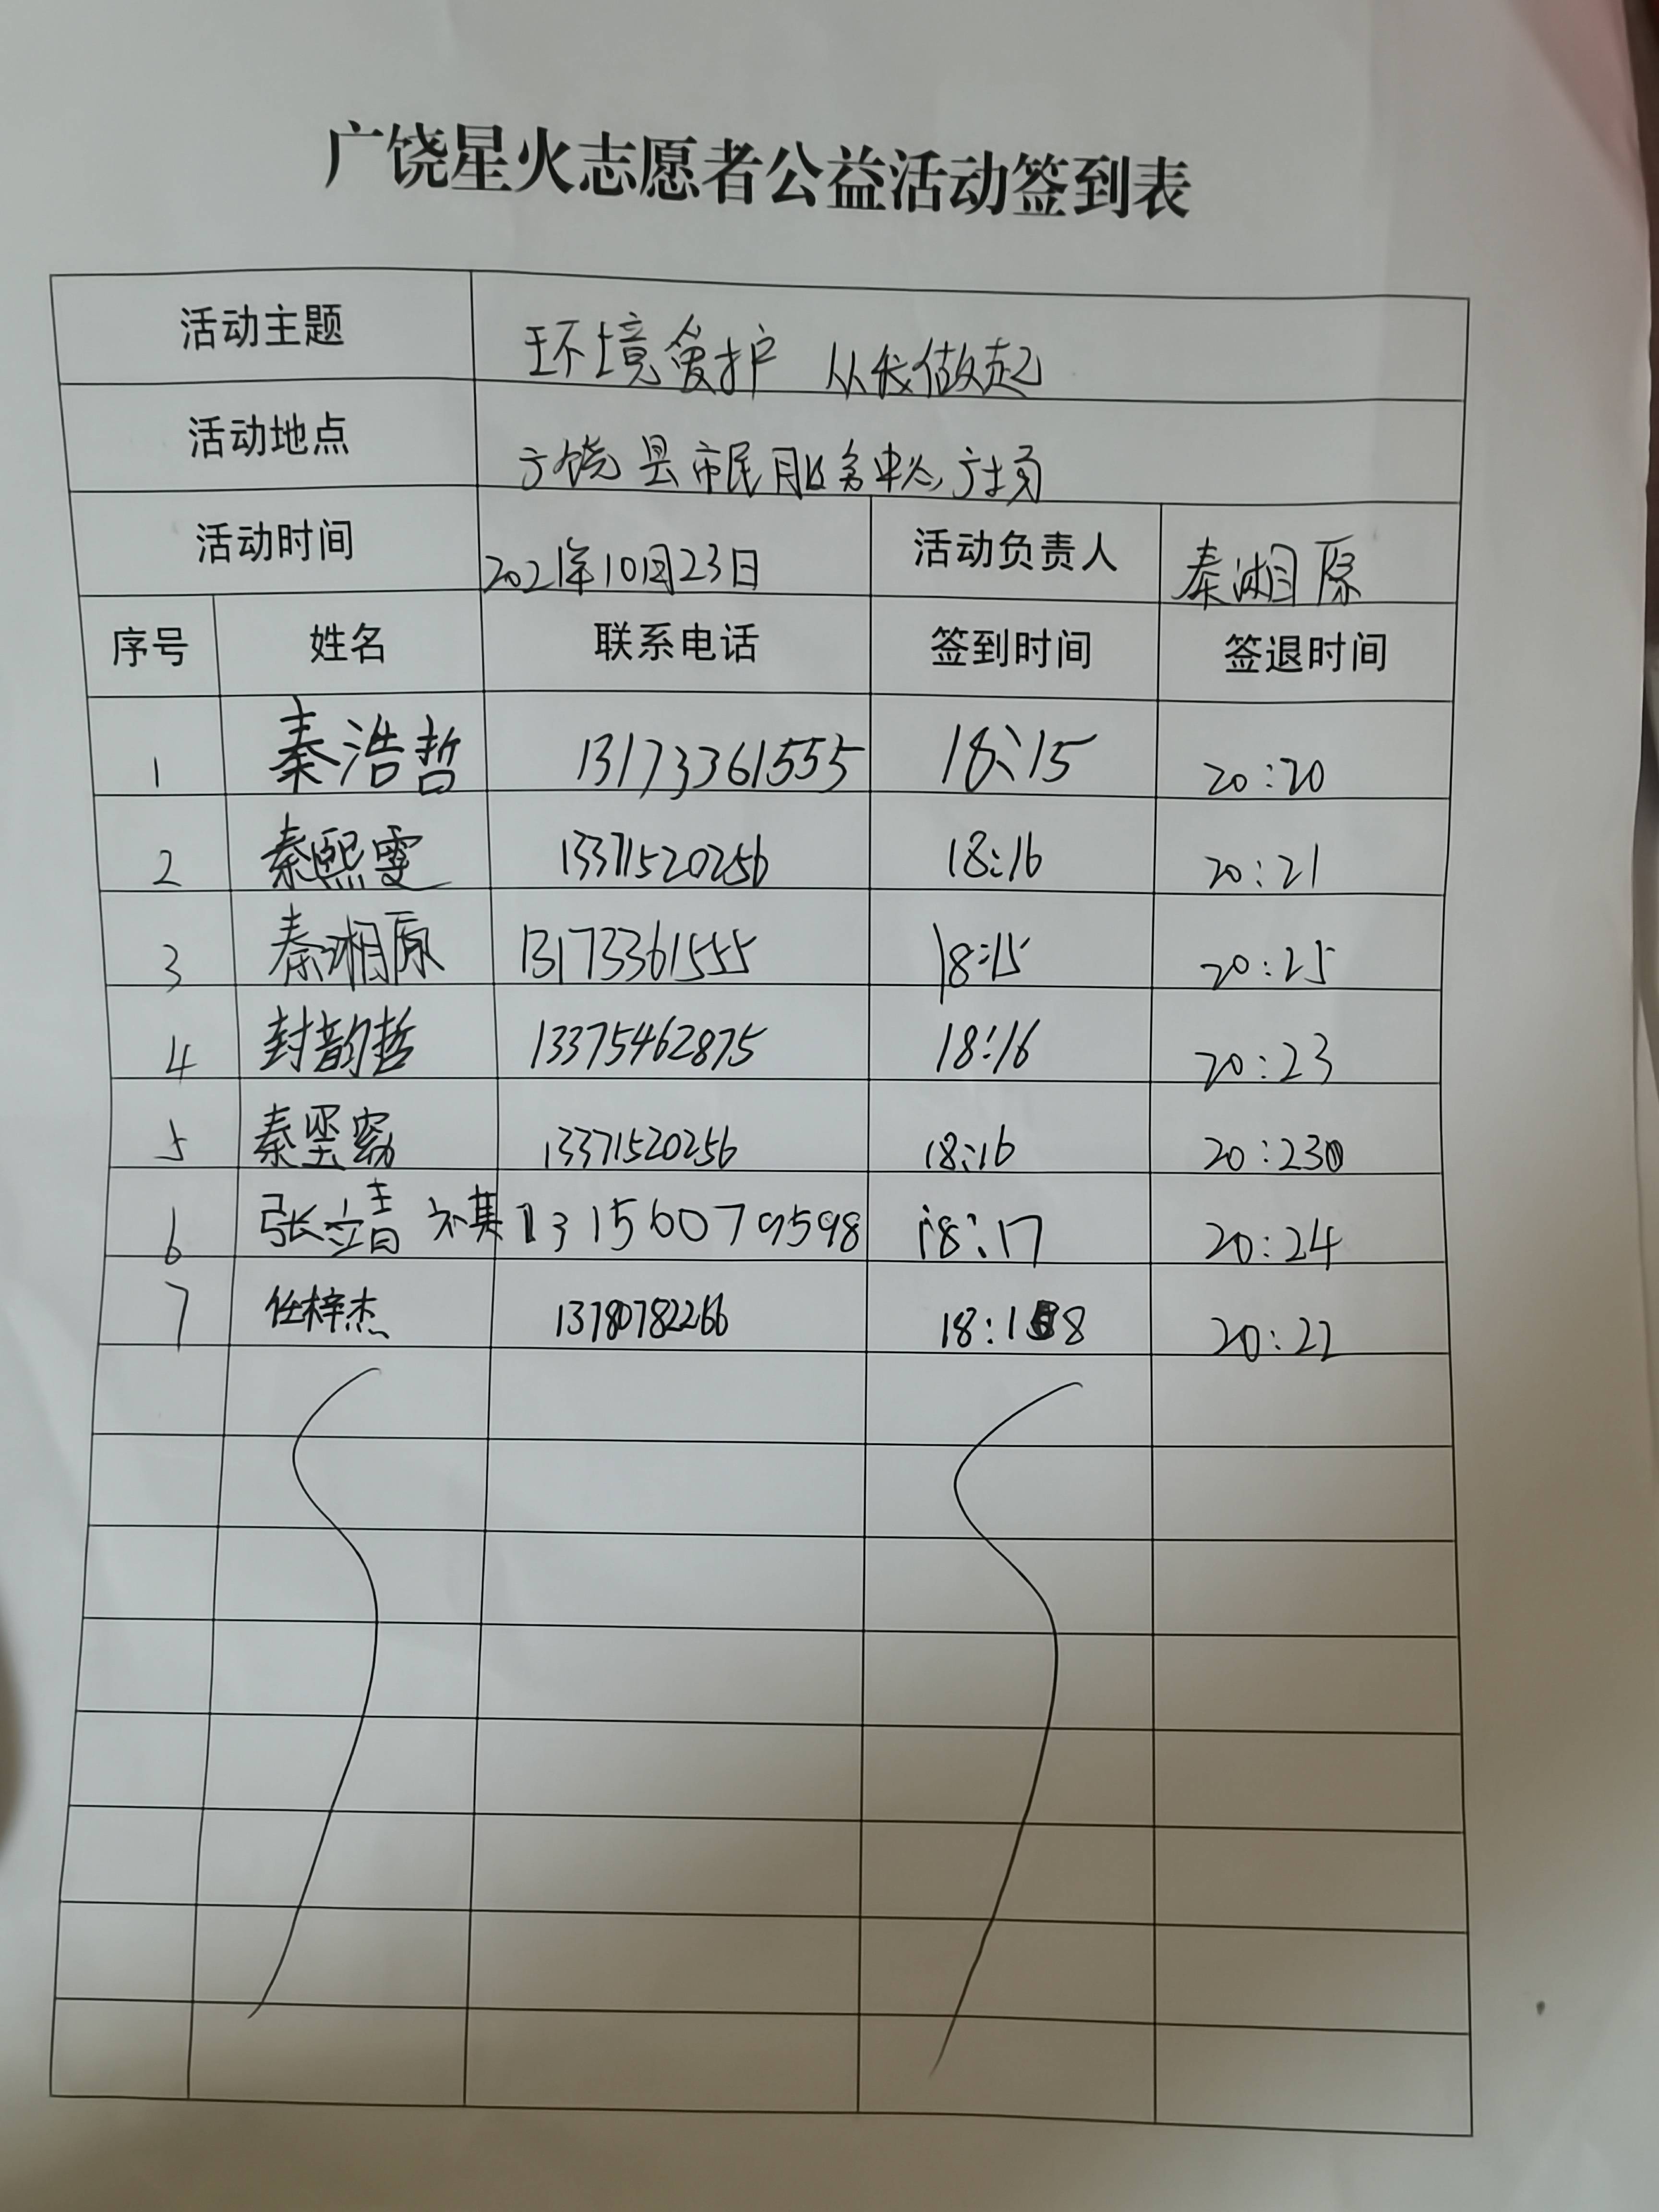 广饶星火志愿者公益活动签到表
活动主题 环境爱护 从我做起
活动地点 广饶县市民服务中心广场
活动时间 2021年10月23日 活动负责人 秦湘原
序号 姓名 联系电话 签到时间 签退时间
1 秦浩哲 13173361555 18:15 20:20
2 秦熙雯 13371520256 18:16 20:21
3 秦湘原 13173361555 18:15 20:25
4 封韵哲 13375462875 18:16 20:23
5 秦坚 13371520256 18:16 20:23
6 张立青 18:17 20:24
7 任梓杰 13780782266 18:18 20:22